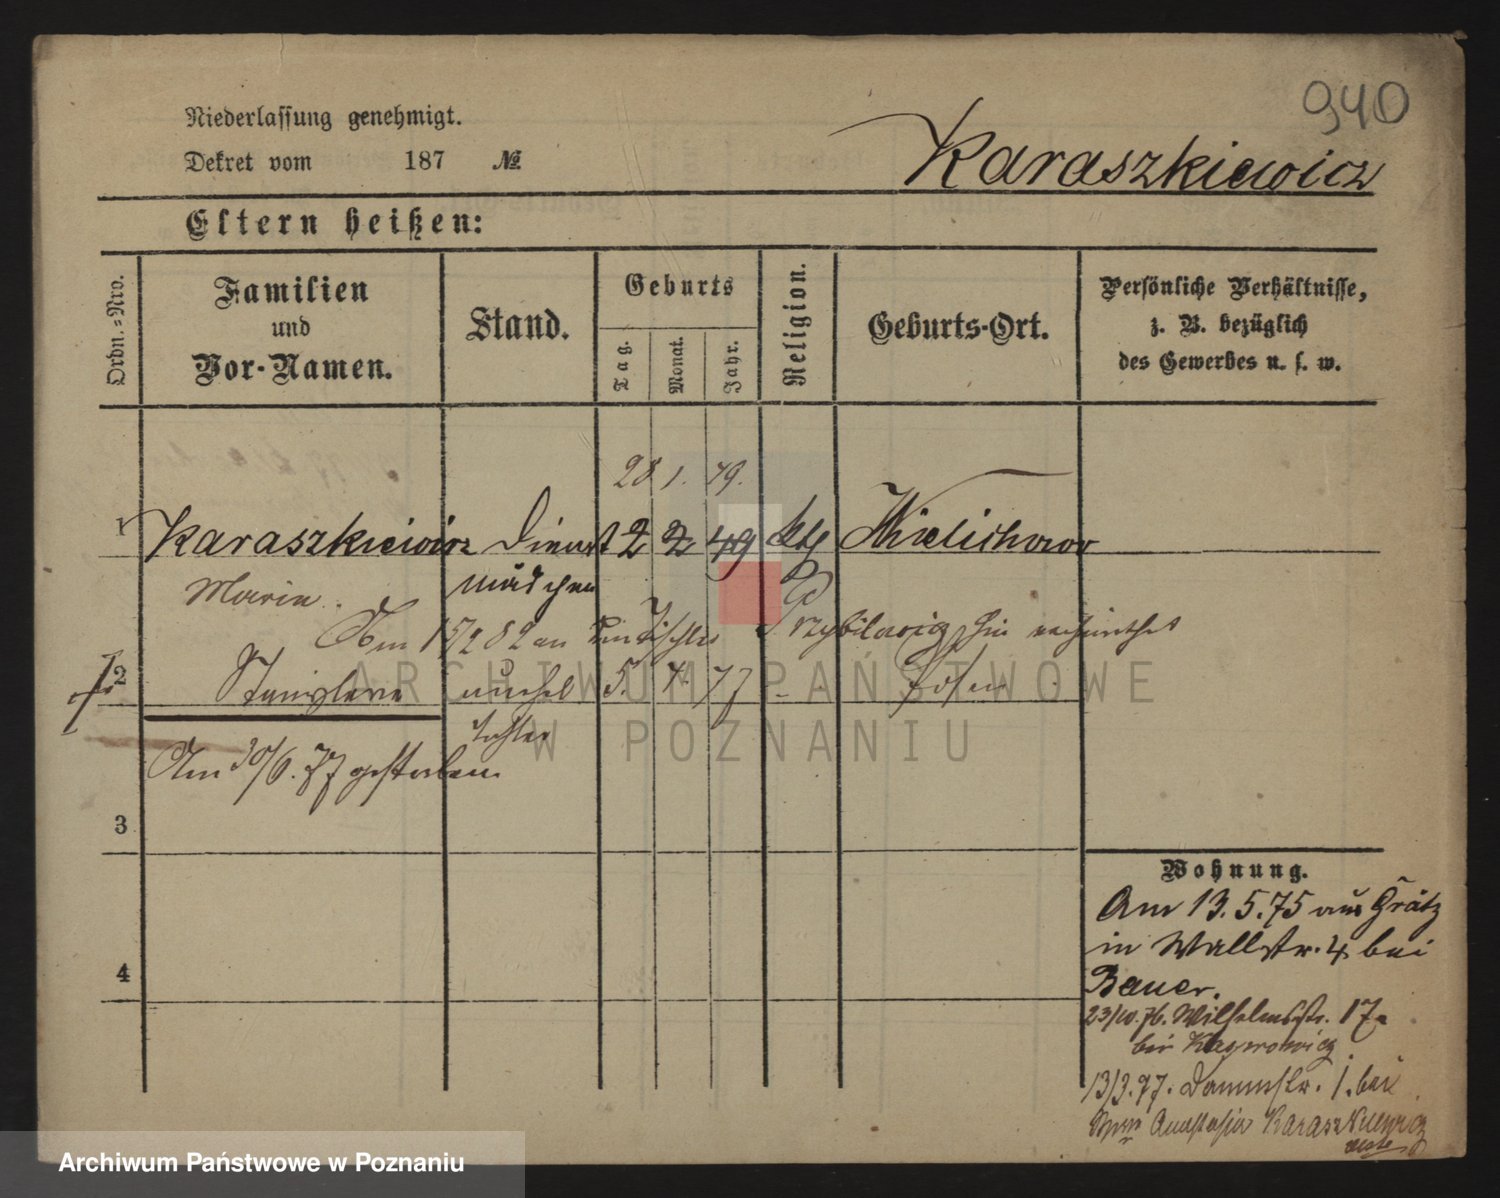 940
Niederlassung genehmigt.
Dekret vom 187 №
Karaszkiewicz
Eltern heißen:
Ordn.=Nro.
Familien
und
Vor-Namen.
Stand.
Geburts
Tag.
Monat.
Jahr.
Religion.
Geburts-Ort.
Persönliche Verhältnisse,
z. B. bezüglich
des Gewerbes u. s. w.
28 1. 49.
1 Karaszkiewicz Dienst 2 2 49 kth Wielichowo
Marie mädchen
Am an den Tischler verheirathet
2 unehel 5. 77 Posen
Tochter
Am 30/6. 77 gestorben
3
4
Wohnung.
Am 13.5.75 aus Grätz
in Wallstr. 4 bei
Bauer.
23/10.76. Wilhelmsstr. 17
bei
13/3.77. Dammstr. 1. bei
Anastasia Karaszkiewicz
ARCHIWUM PAŃSTWOWE
W POZNANIU
Archiwum Państwowe w Poznaniu